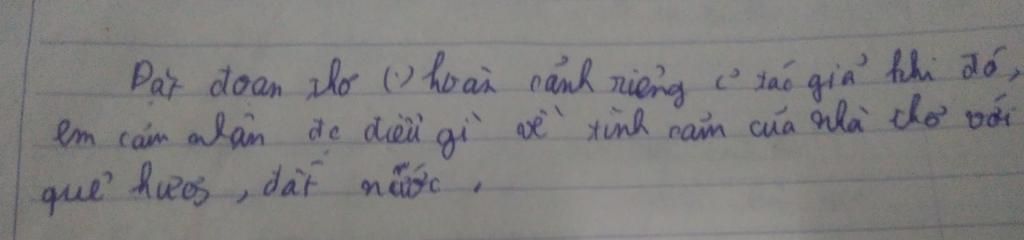 Đặt đoạn thơ (.) hoàn cảnh riêng c' tác giả khi đó,
em cảm nhận đc điều gì về tình cảm của nhà thơ với
quê hươg, đất nước.